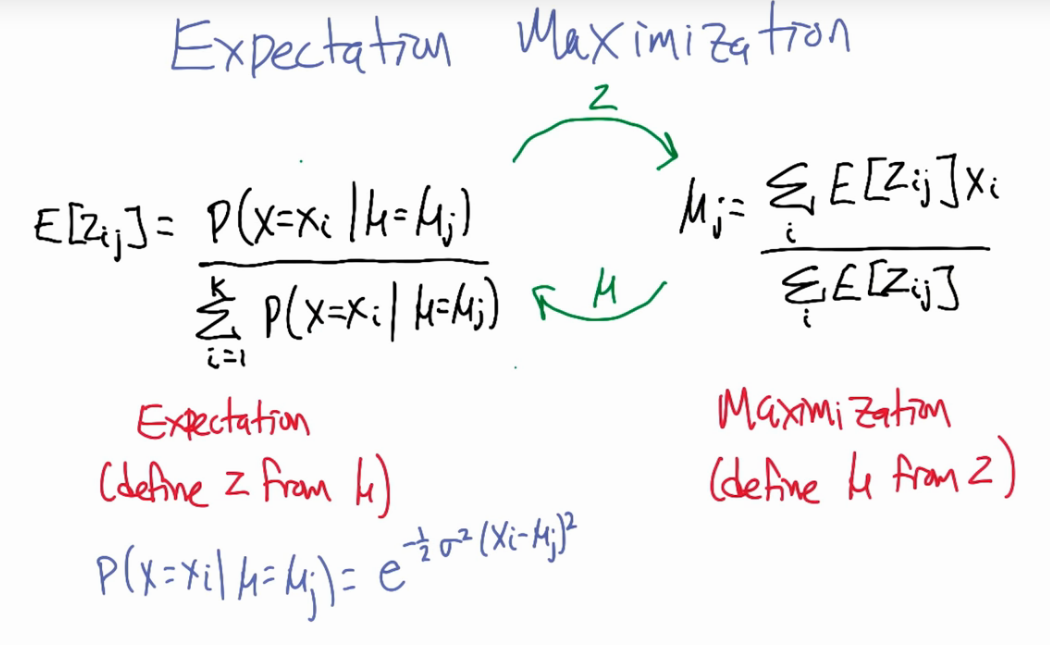 Expectation Maximization
z
E[z_ij] = P(x=x_i | μ=μ_j) / Σ_{i=1}^{k} P(x=x_i | μ=μ_j)
μ_j = Σ_i E[z_ij] x_i / Σ_i E[z_ij]
μ
Expectation
(define z from μ)
Maximization
(define μ from z)
P(x=x_i | μ=μ_j) = e^{-½ σ² (x_i-μ_j)²}